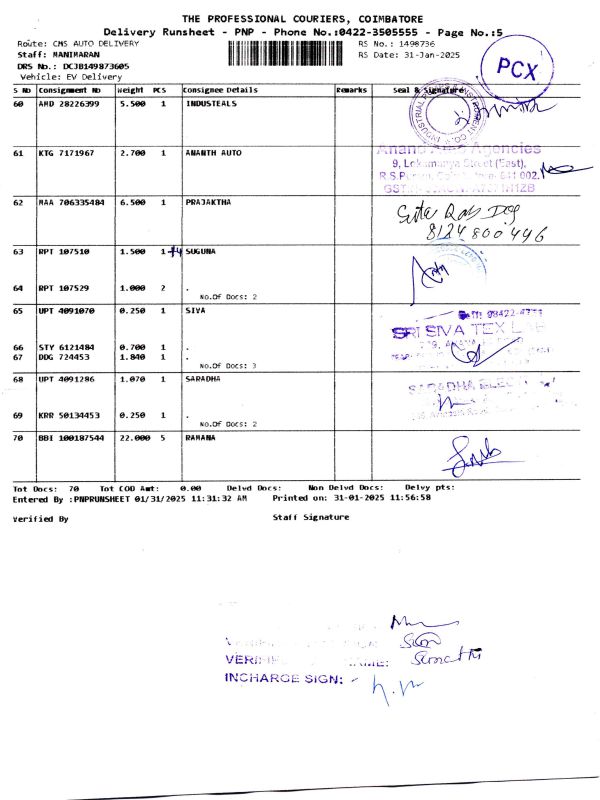 THE PROFESSIONAL COURIERS, COIMBATORE
Delivery Runsheet - PNP - Phone No.:0422-3505555 - Page No.:5
Route: CMS AUTO DELIVERY RS No.: 1498736
Staff: MANIMARAN RS Date: 31-Jan-2025
DRS No.: DCJB149873605
Vehicle: EV Delivery
PCX
S No Consignment No Weight PCS Consignee Details Remarks Seal & Signature
60 AMD 28226399 5.500 1 INDUSTEALS
61 KTG 7171967 2.700 1 ANANTH AUTO
Agencies
9, Lokamanya Street (East),
R.S.Puram, 641 002.
62 MAA 706335484 6.500 1 PRAJAKTHA
8124800496
63 RPT 107510 1.500 1 SUGUNA
64 RPT 107529 1.000 2 .
No.Of Docs: 2
65 UPT 4091070 0.250 1 SIVA
SRI SIVA TEX
66 STY 6121484 0.700 1 .
67 DDG 724453 1.840 1 .
No.Of Docs: 3
68 UPT 4091286 1.070 1 SARADHA
SARADHA
69 KRR 50134453 0.250 1 .
No.Of Docs: 2
70 BBI 100187544 22.000 5 RAMANA
Tot Docs: 70 Tot COD Amt: 0.00 Delvd Docs: Non Delvd Docs: Delvy pts:
Entered By :PNPRUNSHEET 01/31/2025 11:31:32 AM Printed on: 31-01-2025 11:56:58
Verified By Staff Signature
NAME: Sumathi
INCHARGE SIGN: -